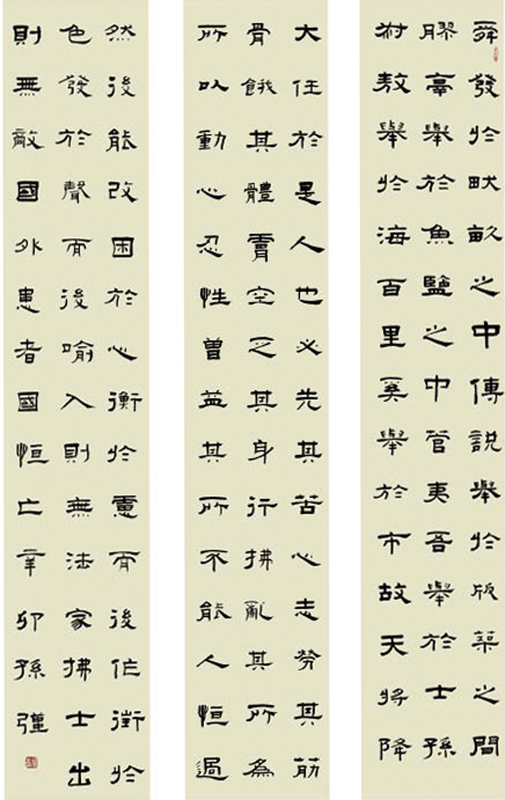 舜發於畎畝之中傅說舉於版築之間
膠鬲舉於魚鹽之中管夷吾舉於士孫
叔敖舉於海百里奚舉於市故天將降
大任於是人也必先其苦心志勞其筋
骨餓其體膚空乏其身行拂亂其所為
所以動心忍性曾益其所不能人恒過
然後能改困於心衡於慮而後作徵於
色發於聲而後喻入則無法家拂士出
則無敵國外患者國恒亡辛卯孫